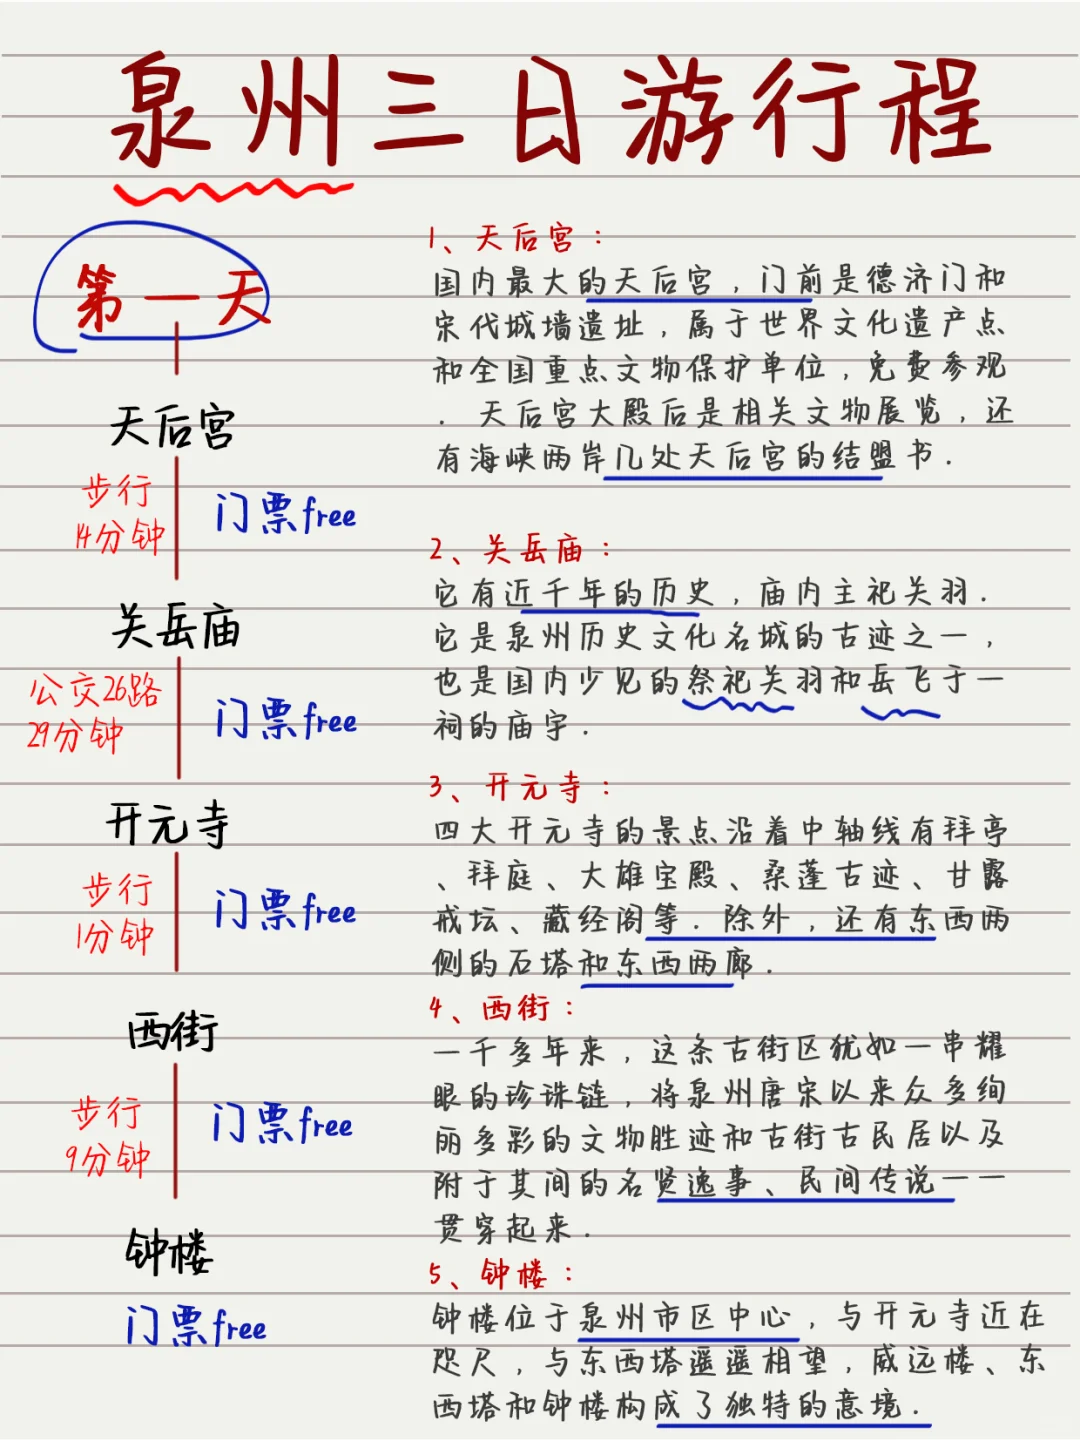 泉州三日游行程
第一天
天后宫
步行
14分钟
门票free
关岳庙
公交26路
29分钟
门票free
开元寺
步行
1分钟
门票free
西街
步行
9分钟
门票free
钟楼
门票free
1、天后宫：
国内最大的天后宫，门前是德济门和
宋代城墙遗址，属于世界文化遗产点
和全国重点文物保护单位，免费参观
．天后宫大殿后是相关文物展览，还
有海峡两岸几处天后宫的结盟书．
2、关岳庙：
它有近千年的历史，庙内主祀关羽．
它是泉州历史文化名城的古迹之一，
也是国内少见的祭祀关羽和岳飞于一
祠的庙宇．
3、开元寺：
四大开元寺的景点沿着中轴线有拜亭
、拜庭、大雄宝殿、桑蓬古迹、甘露
戒坛、藏经阁等．除外，还有东西两
侧的石塔和东西两廊．
4、西街：
一千多年来，这条古街区犹如一串耀
眼的珍珠链，将泉州唐宋以来众多绚
丽多彩的文物胜迹和古街古民居以及
附于其间的名贤逸事、民间传说一一
贯穿起来．
5、钟楼：
钟楼位于泉州市区中心，与开元寺近在
咫尺，与东西塔遥遥相望，威远楼、东
西塔和钟楼构成了独特的意境．